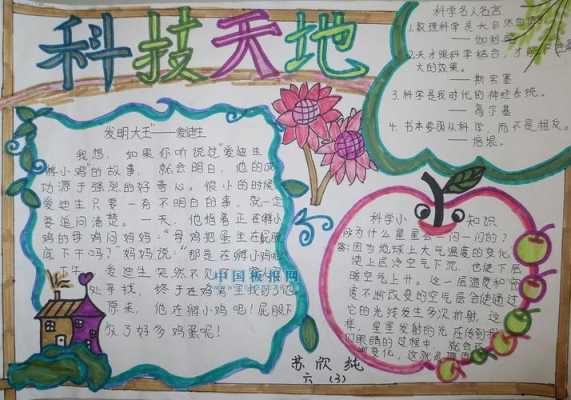 科技天地
科学名人名言
1.数理科学是大自然的语言。
——伽利略
2.天才跟科学结合,才能
大的效果。
——斯宾塞
3.科学是我时代的神经系统。
——高尔基
4.书本要从科学,而不是相反。
——培根。
发明大王——爱迪生
我想,如果你听说过“爱迪生
孵小鸡”的故事,就会明白,他的成
功源于强烈的好奇心。很小的时候
爱迪生只要一有不明白的事,就一定
要追问清楚。一天,他指着正在孵小
鸡的母鸡问妈妈:“母鸡把蛋坐在屁股
底下干吗?”妈妈说:“那是在孵小鸡呢
爱迪生突然不见
处寻找,终于在鸡窝里找到了他
原来,他在孵小鸡吧!屁股下
放了好多鸡蛋呢!
中国板报网
科学小知识
问:为什么星星会一闪一闪的?
答:因为地球上大气温度的变化
使上层冷空气下沉,也使下层
暖空气上升。这一层温度和密
度不断改变的空气层会使通过
它的光线发生多次折射,这
样,星星发射的光在传到
们眼睛的过程中,就会
变化,这就
苏欣纯
六(3)